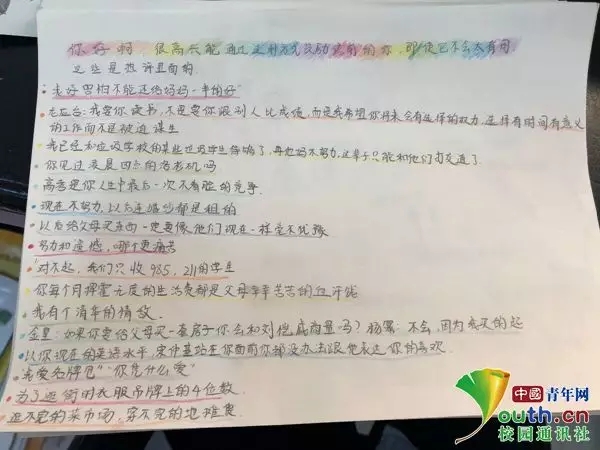 你好啊，很高兴能通过这种方式鼓励未来的你，即使它不会太有用。
这些是热评里面的
老好男怕不能还给妈妈一半的好
龙应台：我要你读书，不是要你跟别人比成绩，而是我希望你将来会有选择的权力，选择有时间有意义
的工作而不是被迫谋生
我已经加应该学校的某些垃圾学生
再拉妈不努力，这辈子只能和他们打交道了
你见过凌晨四点的洛杉矶吗
高考是你人生中最后一次不看脸的竞争
现在不努力，以后连唱的都是租的
以后给父母买东西一定要像他们现在一样毫不犹豫
努力和遗憾，哪个更痛苦
对不起，我们只收985，211的学生
你每个月挥霍无度的生活费都是父母辛辛苦苦的血汗钱
我有个清华的情敌
金星：如果你要给父母买一套房子你会和刘恺威商量吗？杨幂：不会，因为我买的起
以你现在的英语水平，宋仲基站在你面前你都没办法跟他表达你的喜欢
“我爱名牌包”“你凭什么爱”
为了逛街时衣服吊牌上的4位数
逛不完的菜市场，穿不完的地摊货
中國青年网
youth.cn
校园通讯社